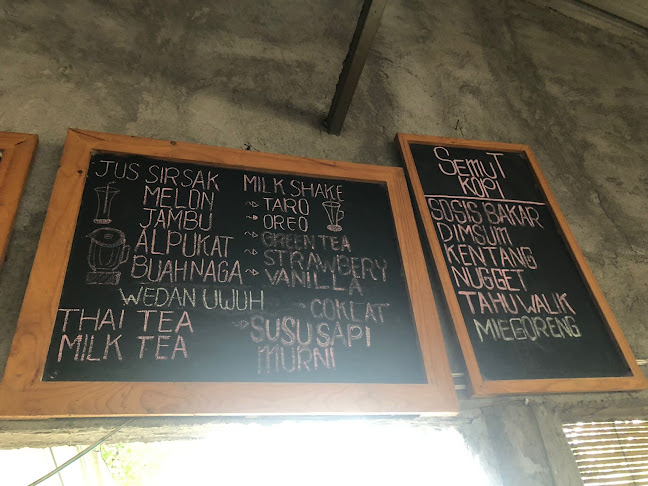 JUS SIRSAK
MELON
JAMBU
ALPUKAT
BUAHNAGA
WEDAN UWUH
THAI TEA
MILK TEA
MILK SHAKE
TARO
OREO
GREEN TEA
STRAWBERY
VANILLA
COKLAT
SUSU SAPI
MURNI
SEMUT
KOPI
SOSIS BAKAR
DIMSUM
KENTANG
NUGGET
TAHU WALIK
MIEGORENG